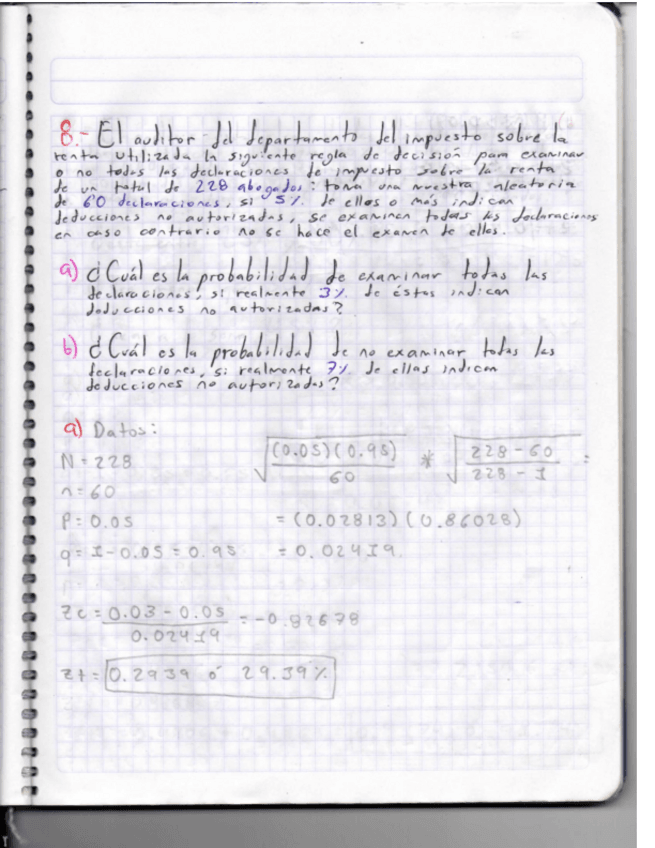 8.- El auditor del departamento del impuesto sobre la
renta utilizada la siguiente regla de decisión para examinar
o no todas las declaraciones de impuesto sobre la renta
de un total de 228 abogados: toma una muestra aleatoria
de 60 declaraciones, si 5% de ellos o más indican
deducciones no autorizadas, se examinan todas las declaraciones
en caso contrario no se hace el examen de ellos.
a) ¿Cuál es la probabilidad de examinar todas las
declaraciones, si realmente 3% de éstas indican
deducciones no autorizadas?
b) ¿Cuál es la probabilidad de no examinar todas las
declaraciones, si realmente 7% de ellas indican
deducciones no autorizadas?
a) Datos:
N = 228
n = 60
P = 0.05
q = 1 - 0.05 = 0.95
√(0.05)(0.95) / 60 * √228 - 60 / 228 - 1 =
= (0.02813)(0.86028)
= 0.02419
Zc = 0.03 - 0.05 / 0.02419 = -0.82678
Zt = 0.2939 ó 29.39%